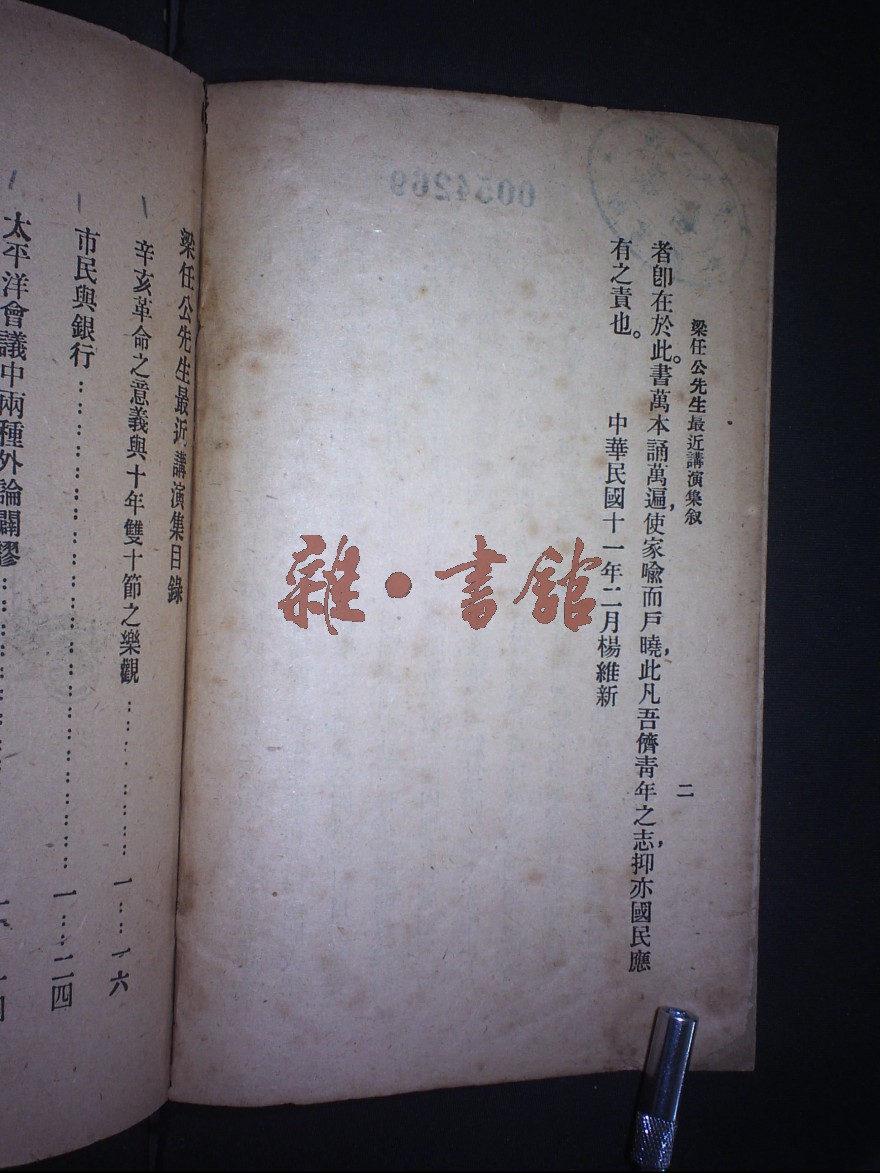 梁任公先生最近講演集叙
二
者卽在於此。書萬本誦萬遍,使家喩而戶曉,此凡吾儕靑年之志,抑亦國民應
有之責也。
中華民國十一年二月楊維新
6054269
雜・書館
梁任公先生最近講演集目錄
辛亥革命之意義與十年雙十節之樂觀 …… 一…一六
市民與銀行 …… 一…二四
太平洋會議中兩種外論闢謬 ……